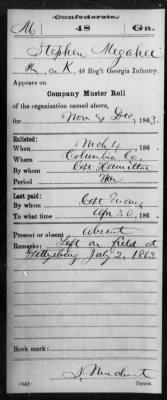 Confederate.
M 48 Ga.
Stephen Megahee
Co. K, 48 Reg't Georgia Infantry.
Appears on
Company Muster Roll
of the organization named above,
for Nov & Dec, 1863.
Enlisted:
When Mch 4, 186
Where Columbia Co.
By whom Capt Hamilton
Period War
Last paid:
By whom Capt Evans
To what time Apr 30, 186
Present or absent Absent
Remarks: Left on field at
Gettysburg July 2, 1863
Book mark:
(642)
Copyist.